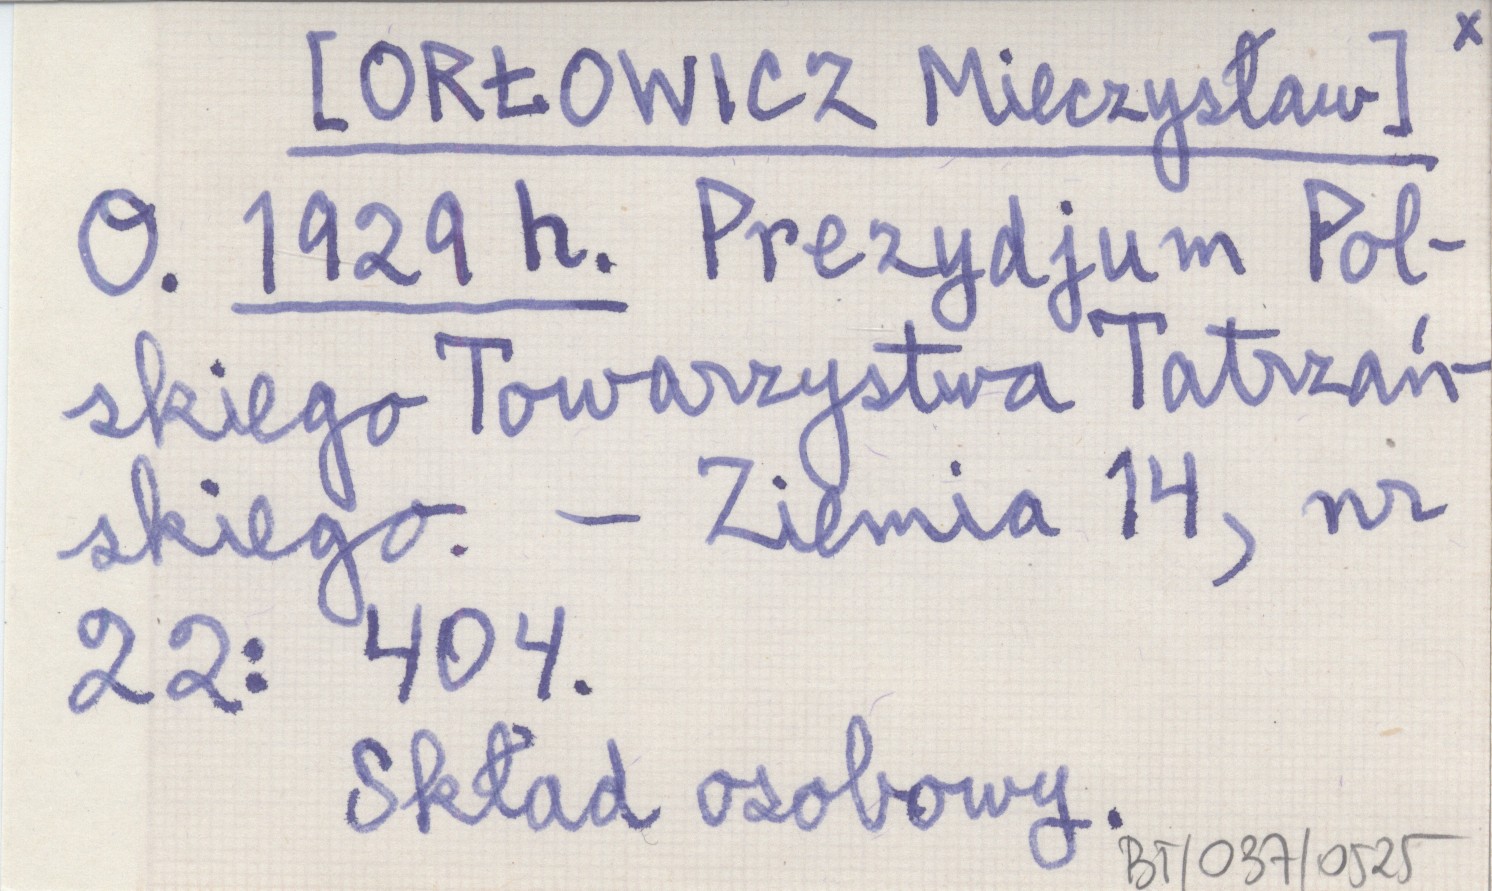 [ORŁOWICZ Mieczysław] x
O. 1929 h. Prezydjum Pol-
skiego Towarzystwa Tatrzań-
skiego. – Ziemia 14, nr
22: 404.
Skład osobowy.
BT/037/0525